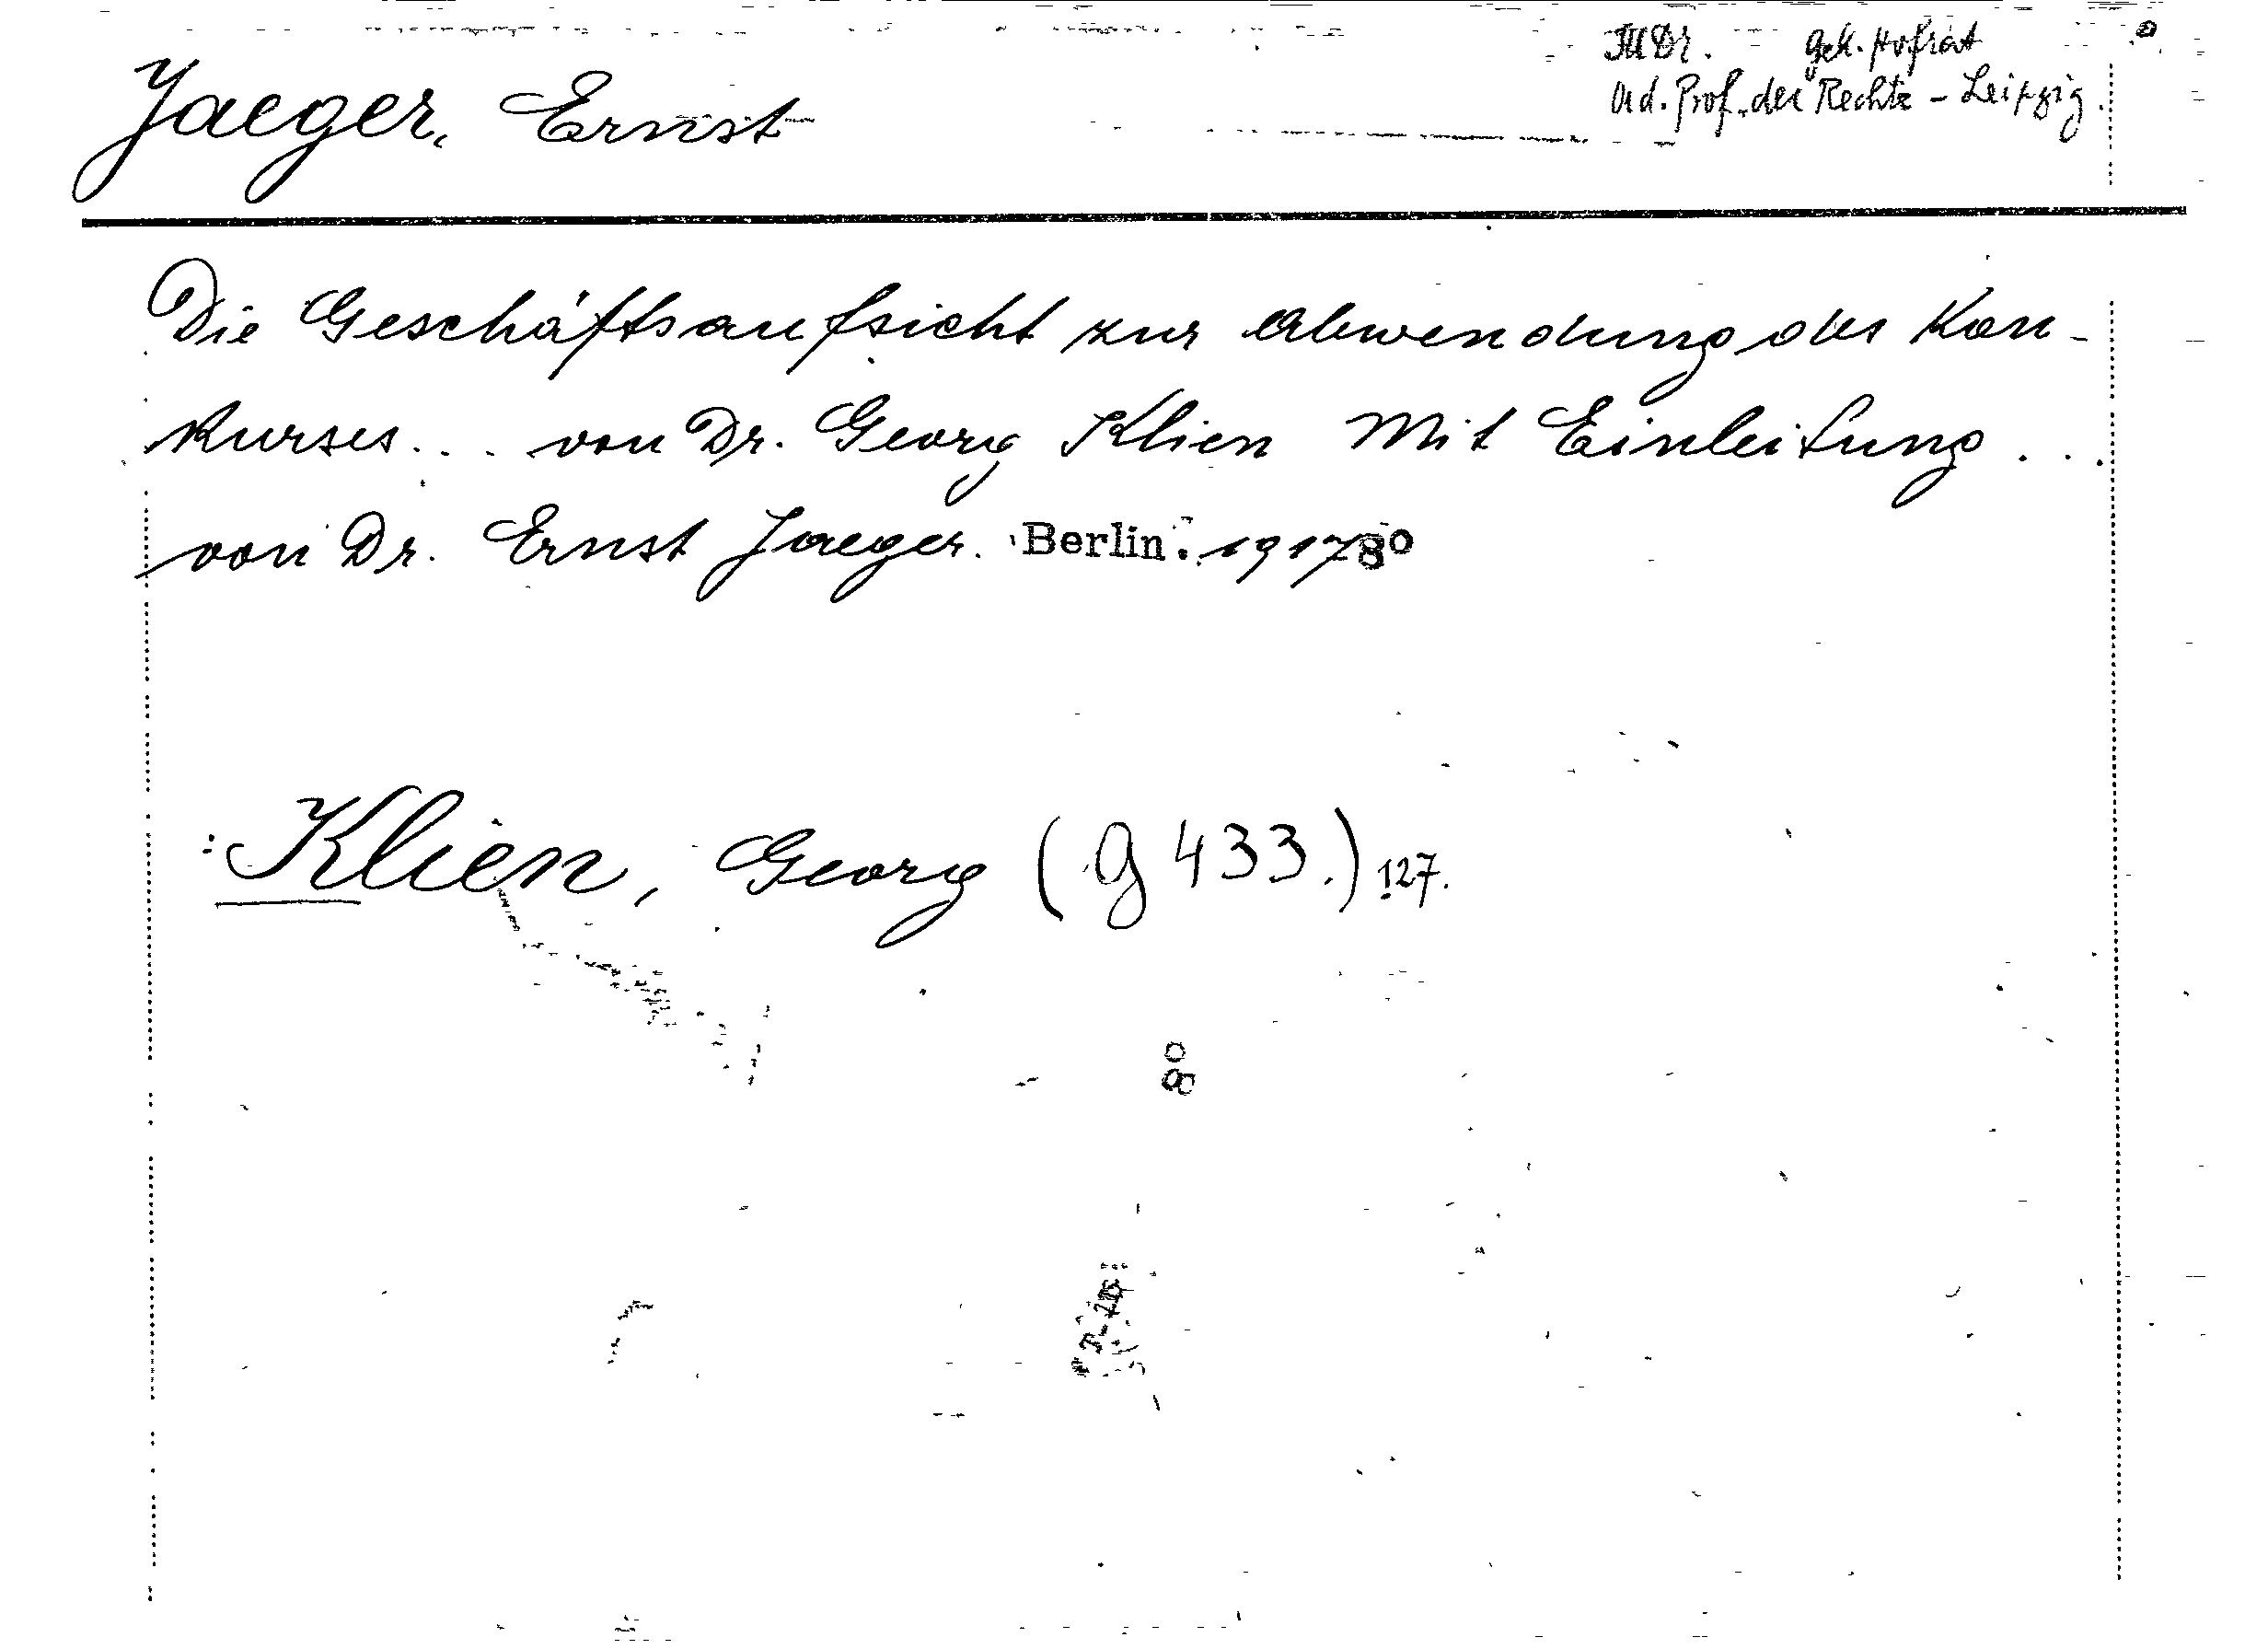 JUDr. Geh. Hofrat
Jaeger, Ernst
Ord. Prof. der Rechte - Leipzig.
Die Geschäftsaufsicht zur Abwendung des Kon-
kurses... von Dr. Georg Klien Mit Einleitung...
von Dr. Ernst Jaeger. Berlin. 1917 8°
: Klien, Georg (g 433.) 127.
8°